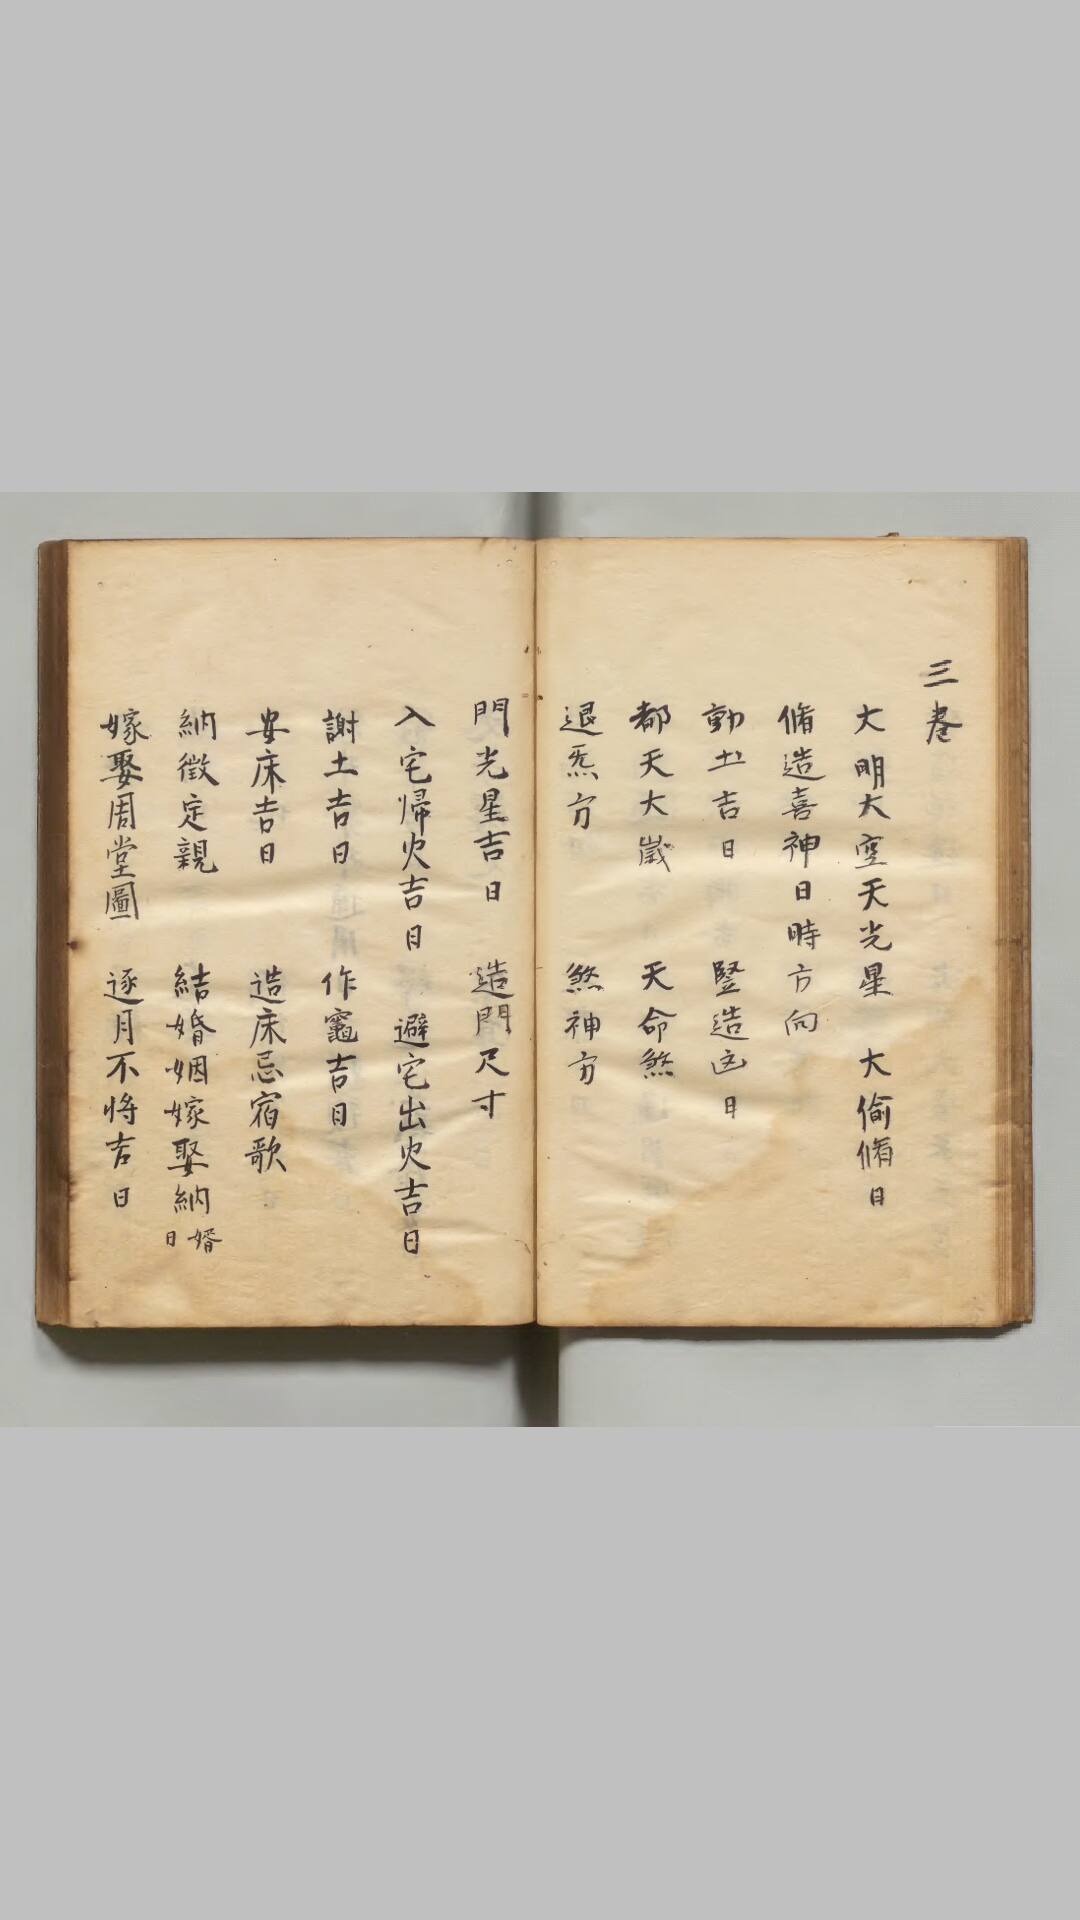 三卷
大明大空天光星　大偷脩日
脩造喜神日時方向
動土吉日　豎造凶日
都天大歲　天命煞
退炁方　煞神方
門光星吉日　造門尺寸
入宅歸火吉日　避宅出火吉日
謝土吉日　作竈吉日
安床吉日　造床忌宿歌
納徵定親　結婚姻嫁娶納婿日
嫁娶周堂圖　逐月不將吉日